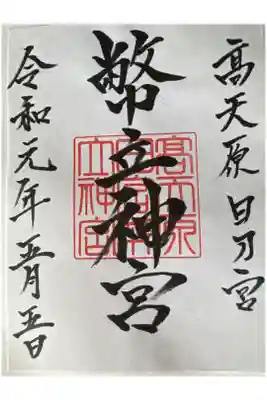 髙天原 日乃宮
幣立神宮
令和元年五月五日
髙天原
立神宮